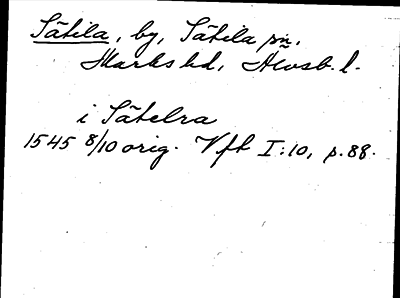 Sätila, by, Sätila sn,
Marks hd, Älvsb. l.
i Sätelra
1545 8/10 orig. Vft I:10, p. 88.